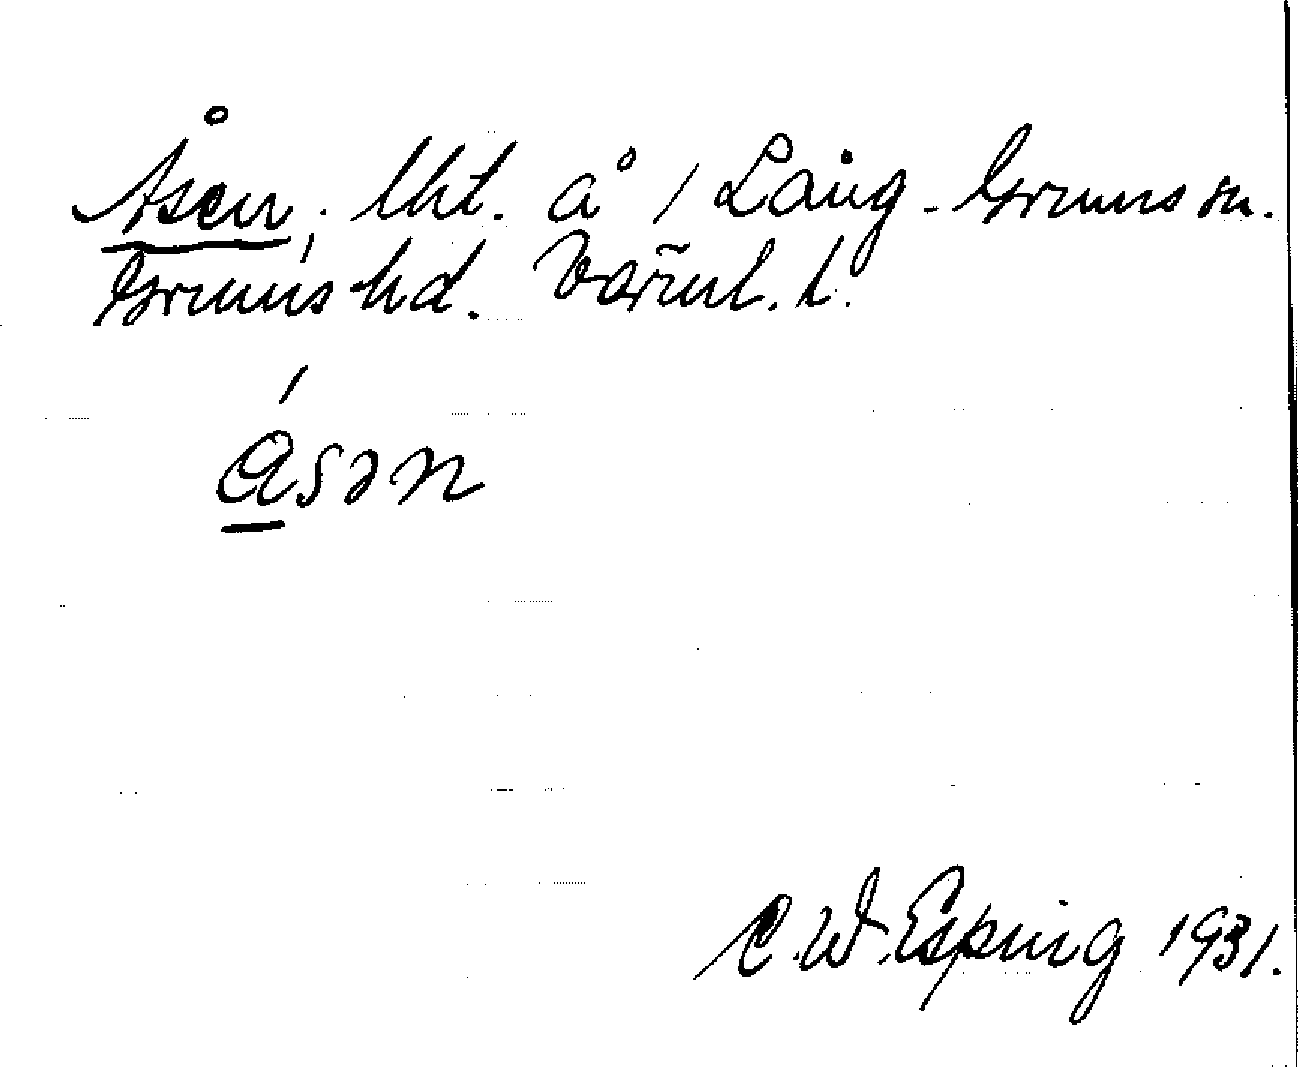 Åsen, lht. å / Lång-Grums sn.
Grums hd. Värml. l.
åsən
C. W. Esping 1931.